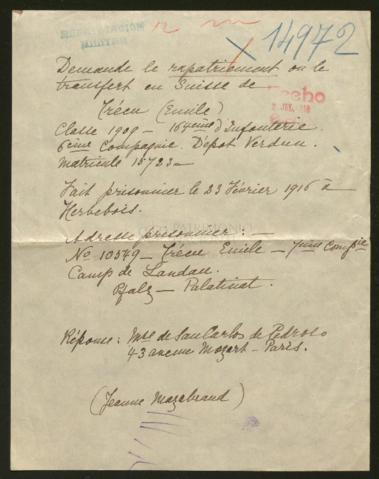 REPATRIACION
MILITAR
12
14972
Demande le rapatriement ou le
transfert en Suisse de
Trécu (Emile)
Classe 1909 - 164eme d'Infanterie
6ème Compagnie. Dépot Verdun.
Matricule 15723
Fait prisonnier le 23 Février 1916 à
Herbebois.
Adresse prisonnier : —
No 10579 - Trécu Emile - 7ème Compie
Camp de Landau.
Pfalz - Palatinat.
Réponse : Mise de San Carlos de Pedroso
43 avenue Mozart - Paris.
(Jeanne Mazabraud)